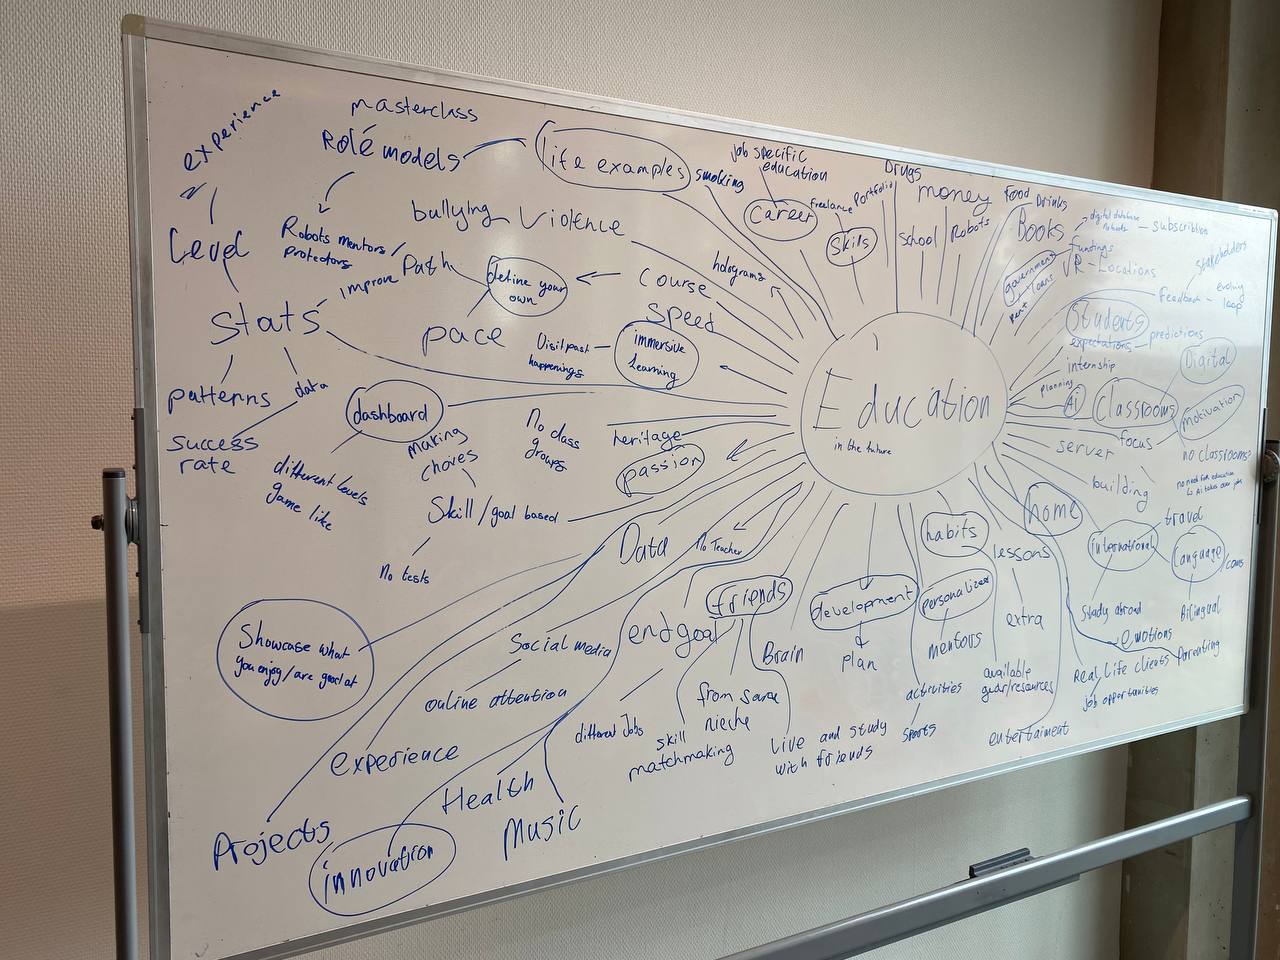 experience
masterclass
Role models
life examples
smoking
job specific
education
career
freelance
Portfolio
skils
Drugs
money
School
Robots
Food
Drinks
Books
digital database
subscribtion
fundings
VR - Locations
stakeholders
government
Rent
loans
Feedback - evolving
loop
Students
expectations
predictions
internship
Digital
planning
Ai
Classrooms
motivation
focus
server
no classrooms?
no need for education
↳ Ai takes over jobs
building
Level
Robots mentors /
protectors
bullying
Violence
improve
Path
define your
own
course
holograms
Stats
pace
Speed
Visit past
happenings
immersive
learning
patterns
data
success
rate
dashboard
different levels
game like
making
choises
No class
groups
heritage
passion
Skill / goal based
No tests
Data
No Teacher
Education
in the future
home
travel
international
Language
Study abroad
Bilingual
habits
lessons
personalized
mentors
extra
available
gear/resources
emotions
Parenting
Real Life clients
job opportunities
entertaiment
friends
development
plan
activities
Sports
endgoal
Brain
different Jobs
skill
matchmaking
from same
nieche
Live and study
with friends
Showcase what
you enjoy/are good at
Social media
online attention
experience
Health
Projects
innovation
Music